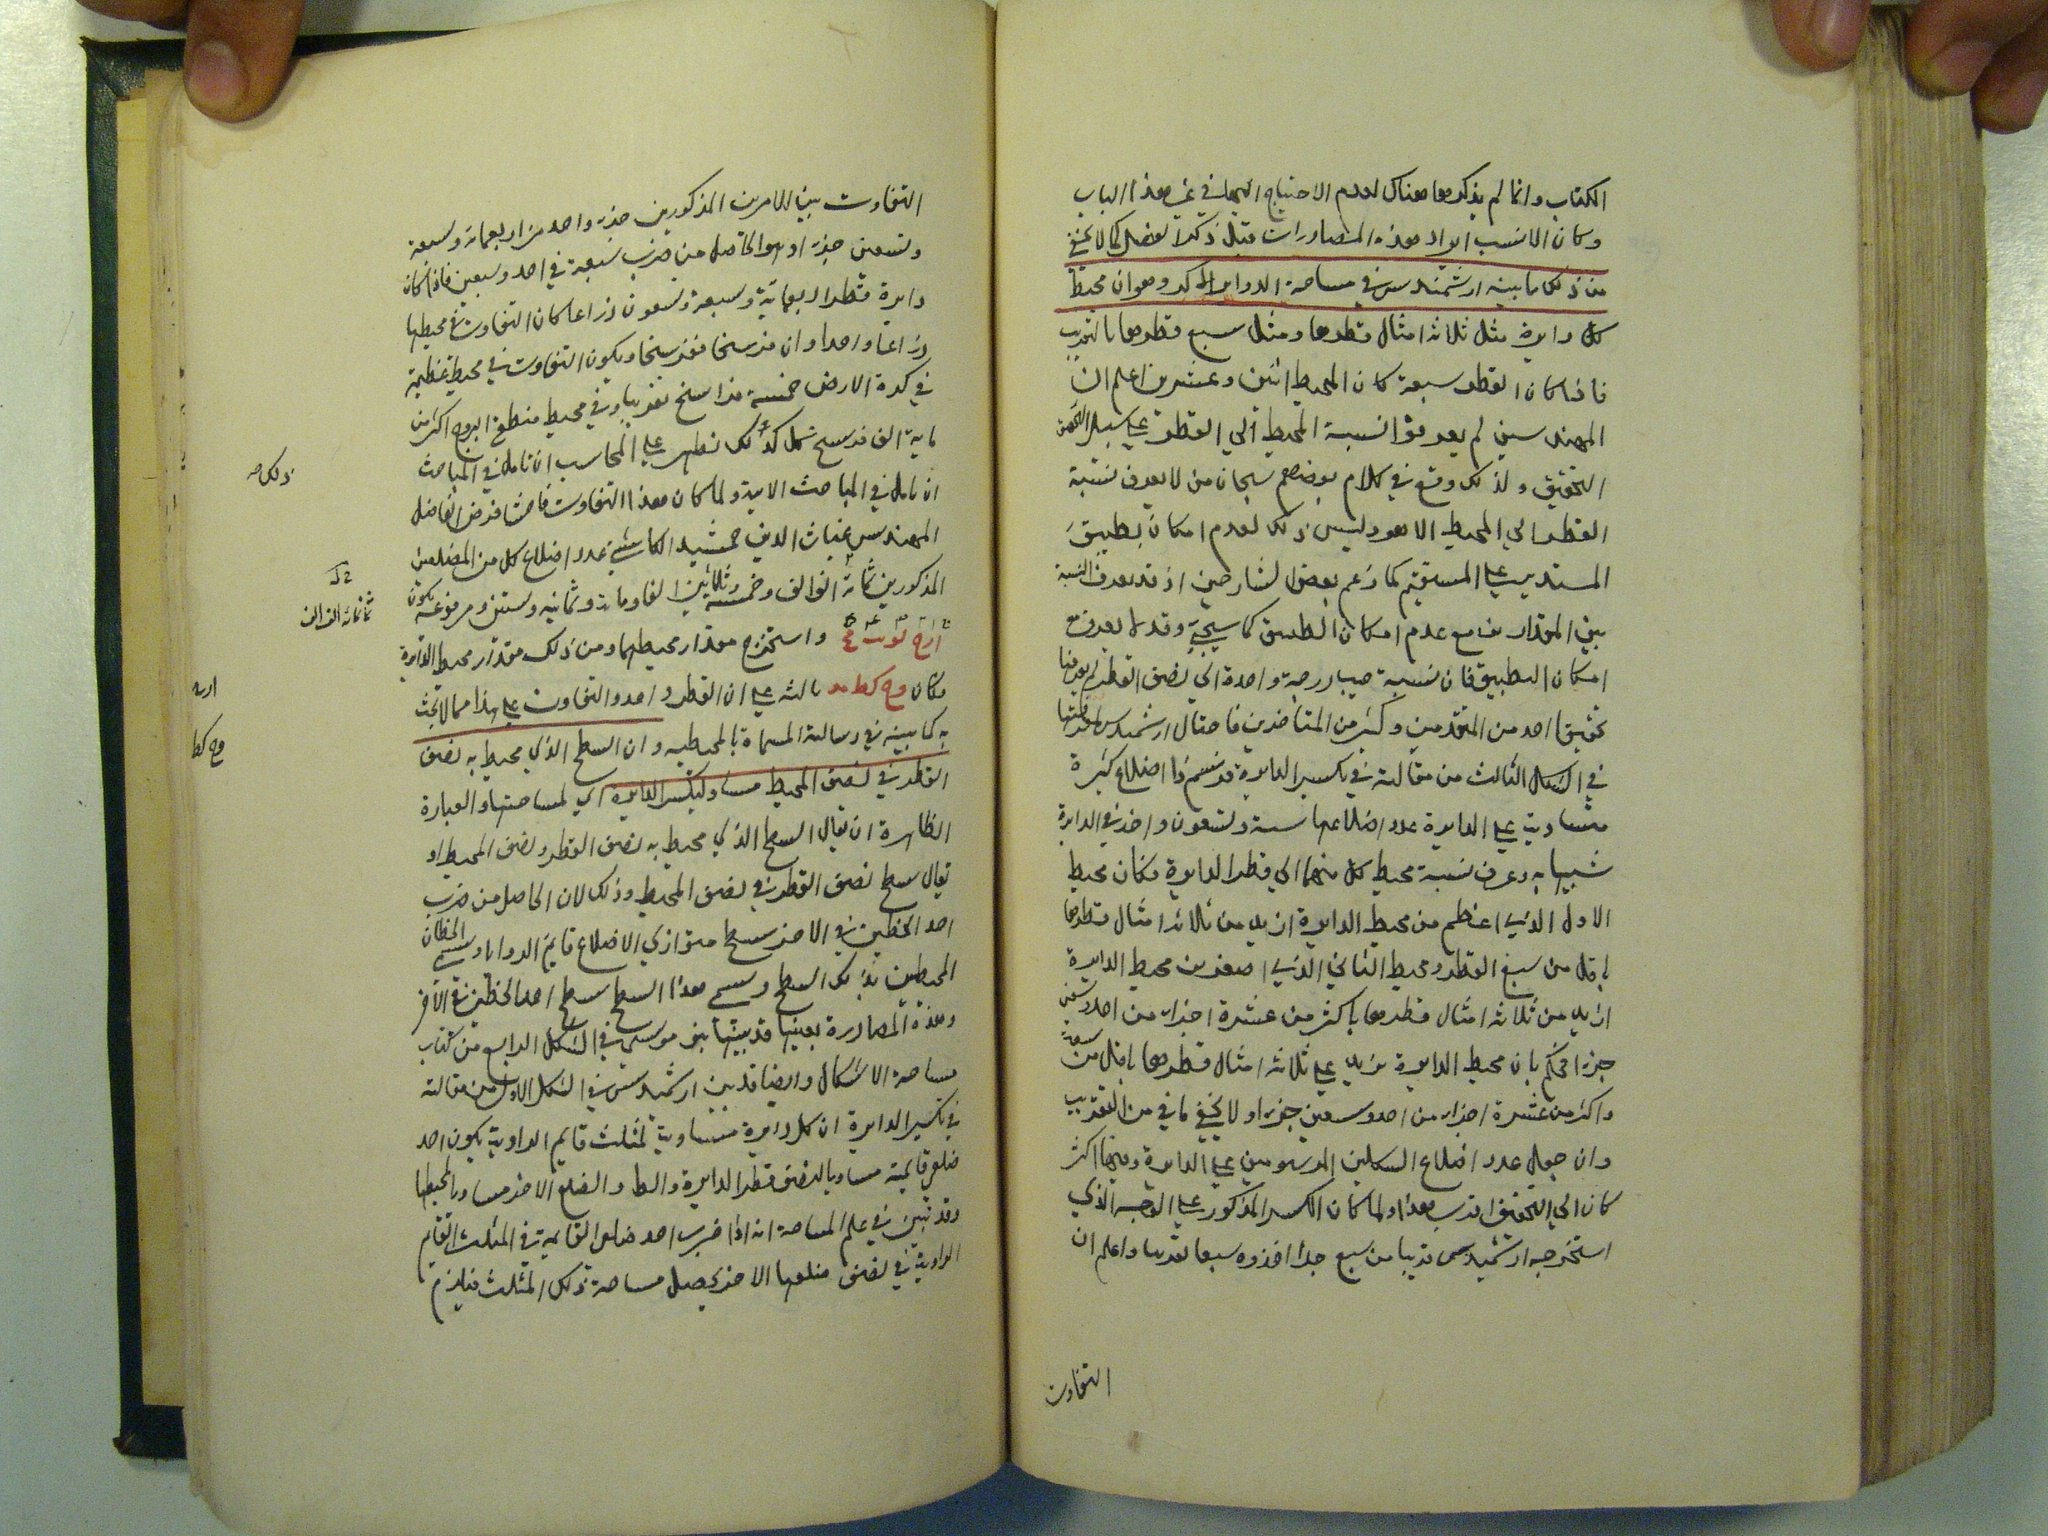 الكتاب وانما لم يذكرها هناك لعدم الاحتياج اليها في غير هذا الباب
وكان الانسب ايراد هذه المصادرات قبل ذكر الفصل كما لا يخفى
من ذلك ما بينه ارشميدس في مساحة الدوائر والاكر وهو ان محيط
كل دايرة مثل ثلاثة امثال قطرها ومثل سبع قطرها بالتقريب
فاذا كان القطر سبعة كان المحيط اثنين وعشرين اعلم ان
المهندسين لم يعرفوا نسبة المحيط الي القطر علي سبيل
التحقيق ولذلك وقع في كلام بعضهم سبحان من لا يعرف نسبة
القطر الي المحيط الا هو وليس ذلك لعدم امكان تطبيق
المستدير علي المستقيم كما زعم بعض الشارحين اذ قد يعرف النسبة
بين المقدارين مع عدم امكان التطبيق كما سيجئ وقد لا يعرف مع
امكان التطبيق فان نسبة جيب درجة واحدة الي نصف القطر لم يعرفها
تحقيقا احد من المتقدمين وكثير من المتأخرين فاحتال ارشميدس
في الشكل الثالث من مقالته في تكسير الدايرة فرسم ذا اضلاع كثيرة
متساوية علي الدايرة عدد اضلاعها ستة وتسعون واخر في الدايرة
شبيها به وعرف نسبة محيط كل منهما الي قطر الدايرة فكان محيط
الاول الذي اعظم من محيط الدايرة ازيد من ثلاثة امثال قطرها
باقل من سبع القطر ومحيط الثاني الذي اصغر من محيط الدايرة
ازيد من ثلاثة امثال قطرها باكثر من عشرة اجزاء من احد وسبعين
جزءا فحكم بان محيط الدايرة يزيد علي ثلاثة امثال قطرها باقل من سبعة
واكثر من عشرة اجزاء من احد وسبعين جزءا ولا يخفي ما في من التقريب
وان جعل عدد اضلاع الشكلين المرسومين علي الدايرة وفيها اكثر
كان الي التحقيق اقرب هذا ولما كان الكسر المذكور علي الوجه الذي
استخرجه ارشميدس قريبا من سبع جدا اخذوه سبعا تقريبا واعلم ان
التفاوت
التفاوت بين الامرين المذكورين جزء واحد من اربعمائة وسبعة
وتسعين جزءا وهو الحاصل من ضرب سبعة في احد وسبعين فاذا كان
دايرة قطرها اربعمائة وسبعة وتسعون ذراعا كان التفاوت في محيطها
ذراعا واحدا وان فرسخا ففرسخا ويكون التفاوت في محيط عظيمة
في كرة الارض خمسة فراسخ تقريبا وفي محيط منطقة البروج اكثر من
ماية الف فرسخ كل ذلك نظهر علي المحاسب ان تامل في المباحث
ان تامل في المباحث الاتية ولما كان هذا التفاوت فاحشا فرض الفاضل
المهندس غياث الدين جمشيد الكاشي عدد اضلاع كل من المضلعين
المذكورين ثمانمائة الف الف وخمسة وثلاثين الفا ومائة وثمانية وستين ومرفوعه يكون
واستخرج مقدار محيطهما ومن ذلك مقدار محيط الدايرة
فكان وح كط مد ثالثة علي ان القطر واحد والتفاوت علي هذا مما لا يحث
به كما بينه في رسالته المسماة بالمحيطيه وان السطح الذي يحيط به نصف
القطر في نصف المحيط مساو لتكسير الدايرة اي لمساحتها والعبارة
الظاهرة ان يقال السطح الذي يحيط به نصف القطر ونصف المحيط او
يقال سطح نصف القطر في نصف المحيط وذلك لان الحاصل من ضرب
احد الخطين في الاخر سطح متوازي الاضلاع قايم الزوايا ويسمي الخطان
المحيطين بذلك السطح ويسمي هذا السطح سطح احد الخطين في الآخر
وهذه المصادرة بعينها قد بينها بنو موسى في الشكل الرابع من كتاب
مساحة الاشكال وايضا قد بين ارشميدس في الشكل الاول من مقالته
في تكسير الدايرة ان كل دايرة مساوية لمثلث قايم الزاوية يكون احد
ضلعي قايمته مساويا لنصف قطر الدايرة والضلع الاخر مساويا لمحيطها
وقد تبين في علم المساحة انه اذا ضرب احد ضلعي القايمة في المثلث القايم
الزاوية في نصف ضلعها الاخر يحصل مساحة ذلك المثلث فيلزم
ذلك صه
ثمانمائة الف الف
وح كط